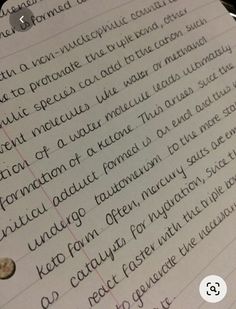 is formed
with a non-nucleophilic counter
to protonate the triple bond, other
species can add to the carbon such
molecules like water or methanol.
of a water molecule leads ultimately
formation of a ketone. This arises since the
initial adduct formed is an enol and this
undergo tautomerism to the more
keto form. Often, mercury salts are
as catalysts for hydration, since
react faster with the triple
to generate the necessary